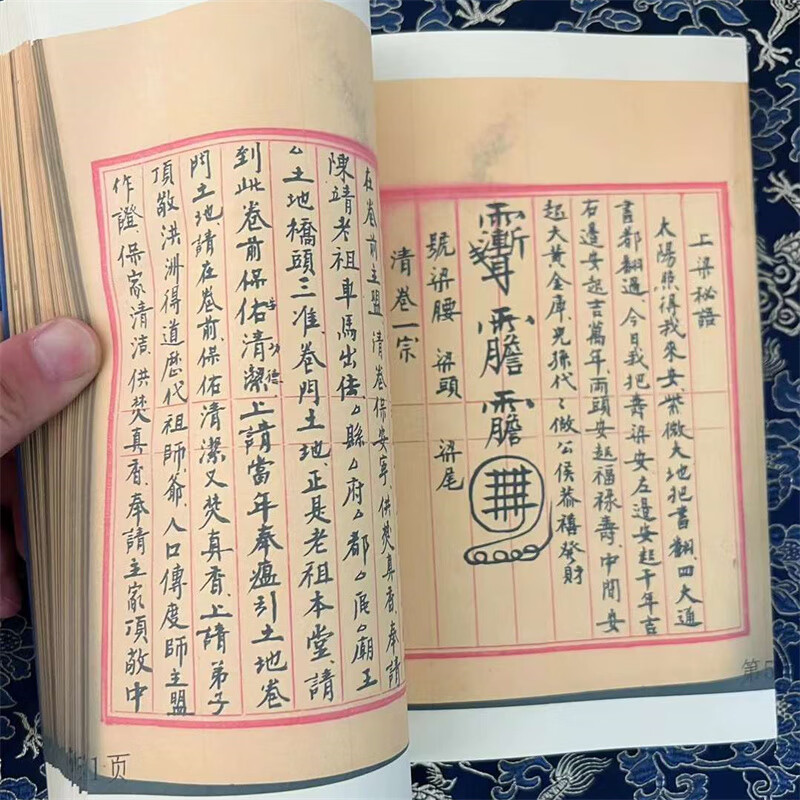 上梁秘語
太陽照得我來安、紫微大地把書翻、四大通
書都翻過、今日我把壽梁安、左邊安起千年吉
右邊安起吉萬年、兩頭安起福祿壽、中間安
起大黃金庫、兒孫代〻做公侯恭禧發財
號梁腰 梁頭 梁尾
清卷一宗
第
在卷前主盟、清卷保安寧、供焚真香、奉請
陳靖老祖車馬出厶縣厶府厶都厶厶廟王
厶土地橋頭三准、卷門土地、正是老祖本堂、請
到此卷前保佑清潔、上請當年奉瘟引土地卷
門土地、請在卷前、保佑清潔又焚真香、上請弟子
頂敬洪洲得道歷代祖師爺、人口傳度師主盟
作證保家清供焚真香、奉請主家頂敬中
1页